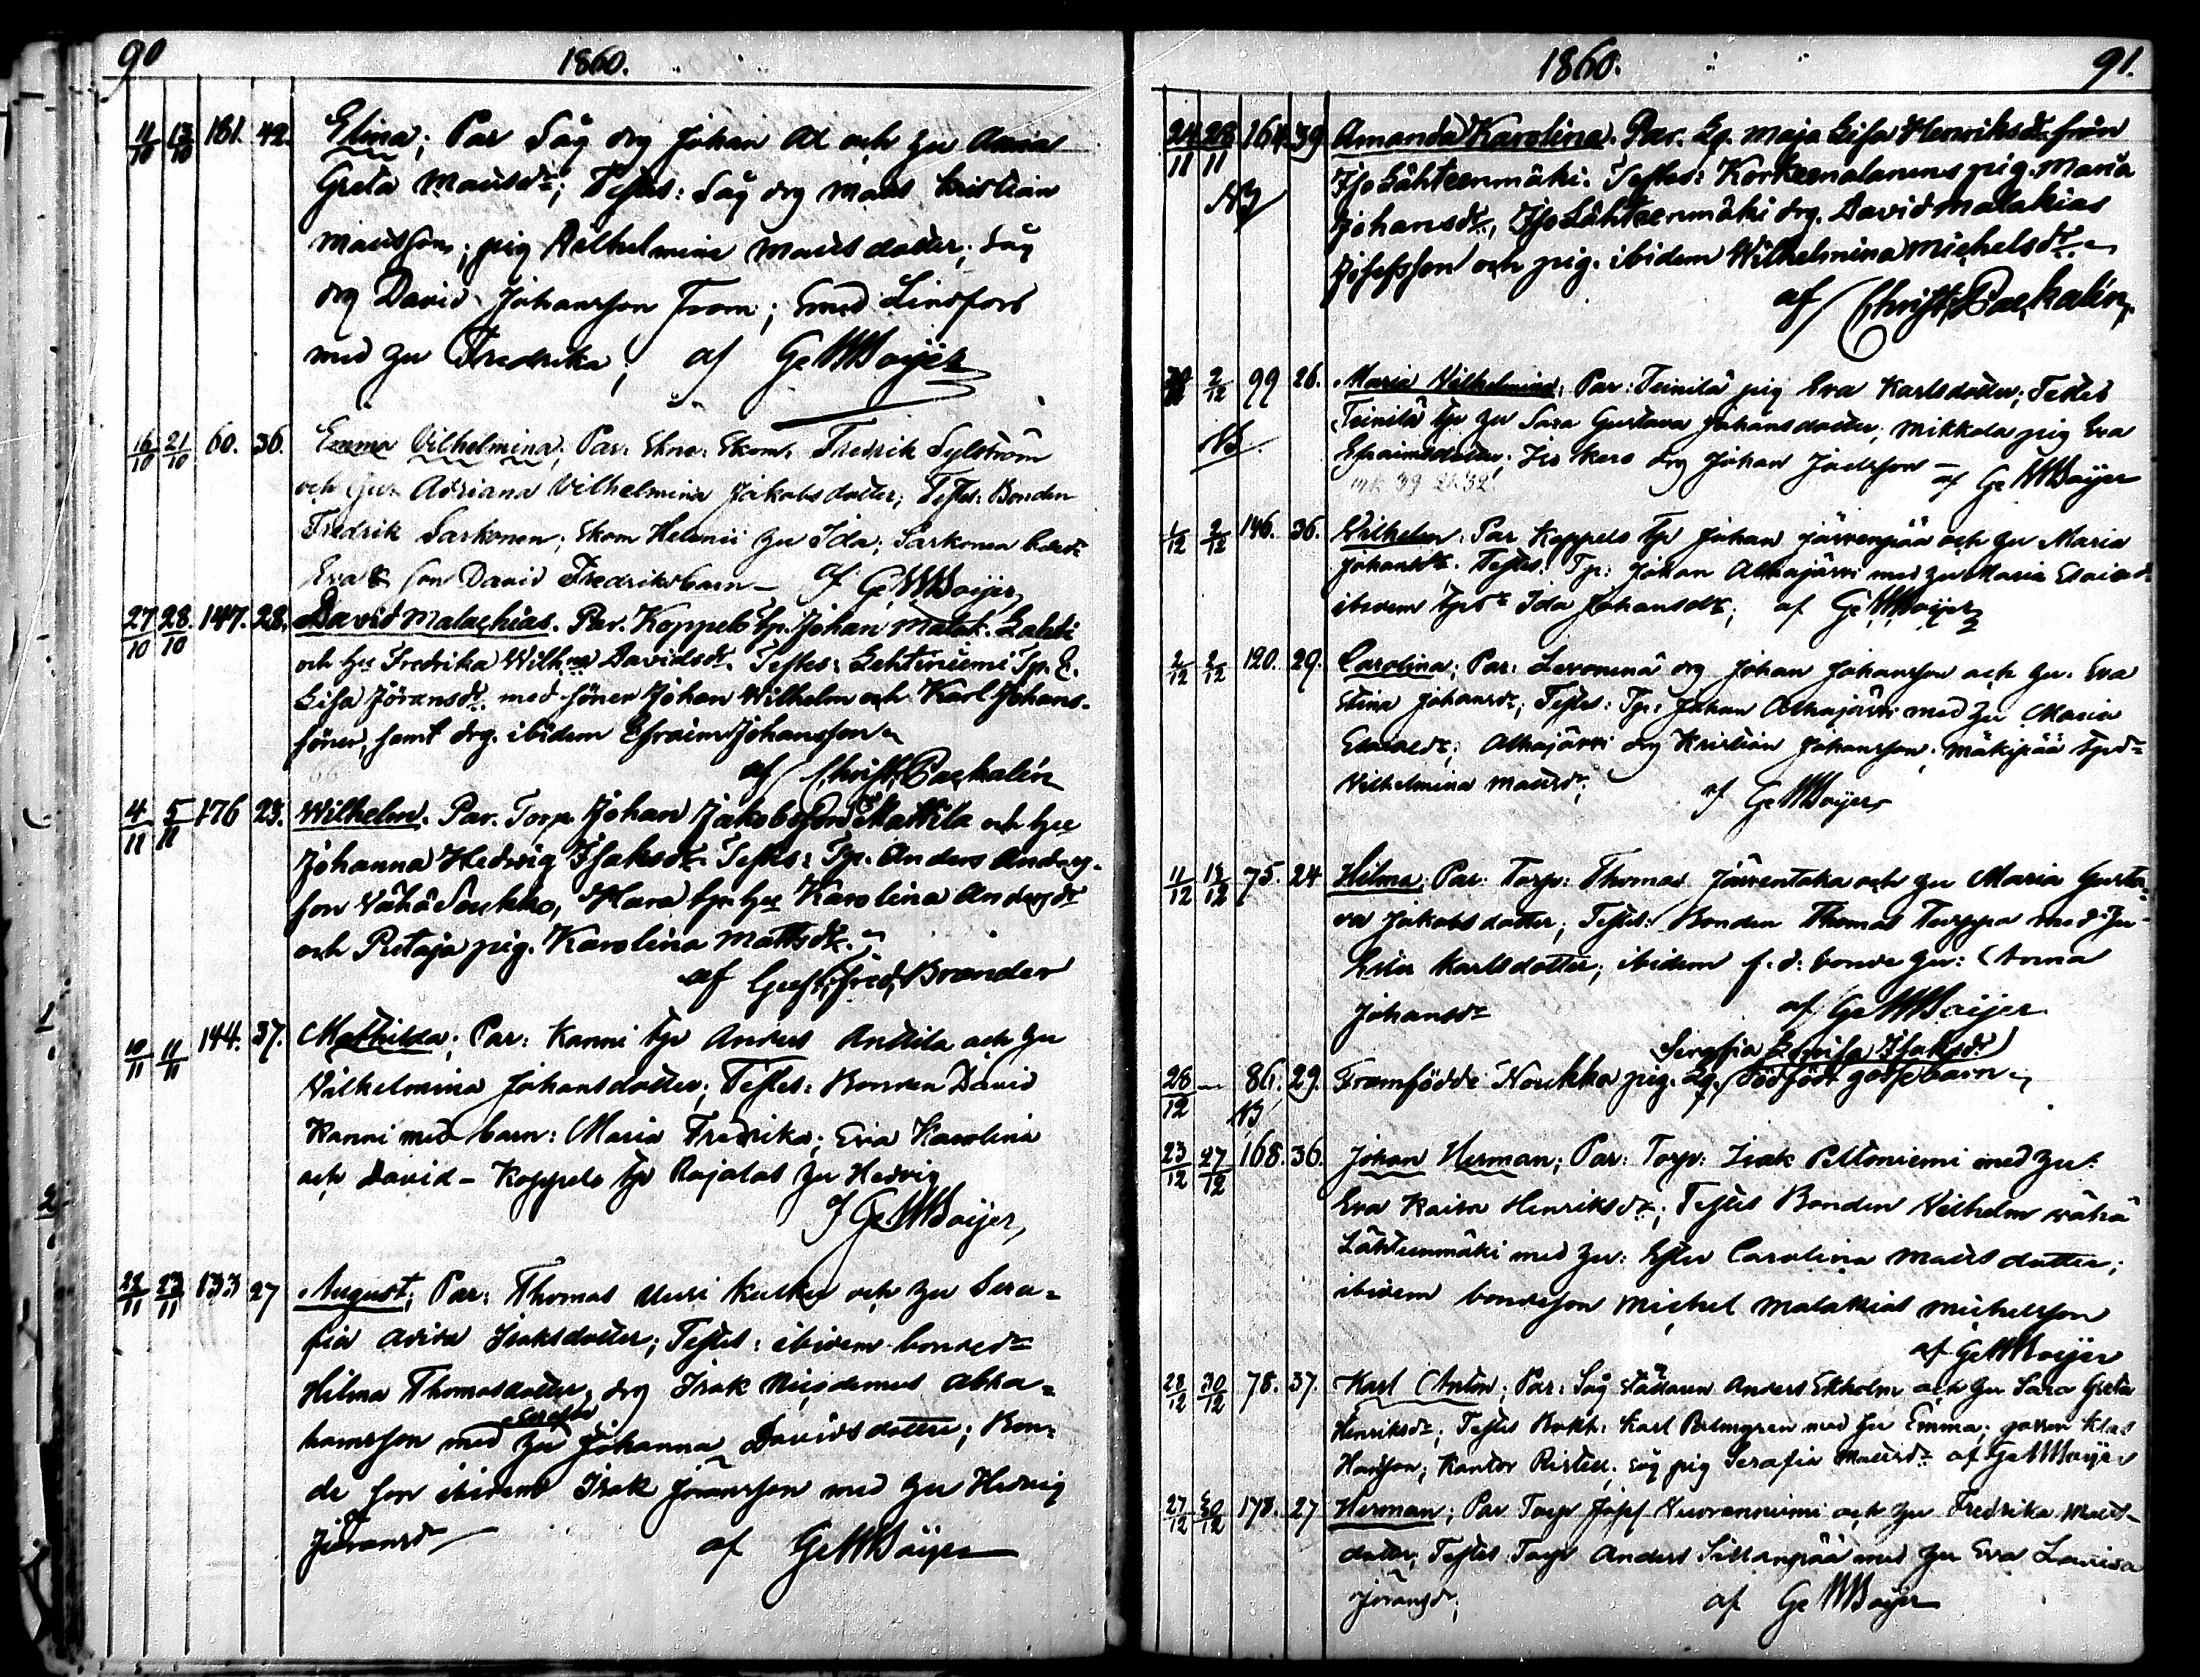 90 1860.
11/10 13/10 181. 42. Elina; Par Såg drg Johan Al och hu Anna
Greta Matsdr; Testes: Såg drg Mats Kristian
Matsson; pig Vilhelmina Matsdotter; Såg
drg David Johansson From; Smed Lindfors
med hu Fredrika; af G W Boijer
16/10 21/10 60. 36. Emma Vilhelmina; Par: Skom. Fredrik Sylström
och hu Adriana Vilhelmina Jakobsdotter; Testes: Bonden
Fredrik Sarkonen; Skom hu Ida; Sarkonen
Eva & son David Fredriksbarn – af G W Boijer
27/10 28/10 147. 28. David Malachias. Par. Koppelo tp. Johan Malak. Lahti
och hu Fredrika Wilhma Davidsdr. Testes: Lehtiniemi Tp. E.
Lisa Jöransdr. med söner Johan Wilhelm och Karl Johans-
söner, samt drg. ibidem Efraim Johansson
af Christ. Paskalin
4/11 5/11 176 23. Wilhelm. Par. Torp Johan Jakobsson Mattila och hu
Johanna Hedwig Isaksdr. Testes: Tp. Anders Anders-
son Vähä Soukko, Hara tp. hu Karolina Andersdr
och Pietaja pig. Karolina Mattsdr.
af Gust. Fred. Brander
10/11 11/11 144. 37. Mathilda; Par: Kanni tp Anders Anttila och hu
Vilhelmina Johansdotter; Testes: Bonden David
Kanni med barn: Maria Fredrika; Eva Karolina
och David – Koppelo tp Rajalas hu Hedvig
G W Boijer,
22/11 23/11 133 27 August; Par: Thomas Uusi Kulkky och hu Sera-
fia Isaksdotter; Testes: ibidem bondedr
Hilma Thomasdotter, drg Isak Nicodemus Abra-
hamsson med hu Johanna Davidsdotter; Bon-
de son ibidem Isak Jöransson med hu Hedvig
Jöransdr af G W Boijer
1860. 91.
24/11 28/11 164. 39. Amanda Karolina. Par. Lg. Maja Lisa Henriksdr från
Iso Lähteenmäki. Testes: Korkeenalanens pig. Maria
NB
Johansdr., Iso Lähteenmäki drg. David Malakias
Josefsson och pig. ibidem Wilhelmina Michelsdr.
af Christ. Paskalin
2/12 99 26. Maria Vilhelmina; Par: Teinilä pig Eva Karlsdotter; Testes
Teinilä tp hu Sara Gustava Johansdotter, Mikkola pig Eva
NB.
Efraimsdotter, Iso Kero drg Johan Joelsson – af G W Boijer
1/12 2/12 146. 36. Vilhelm. Par Koppelo tp Johan Järvenpää och hu Maria
Johansdr. Testes: Tp: Johan Alhajärvi med hu Maria Esaiedr
ibidem tpdr Ida Johansdr; af G W Boijer
2/12 2/12 120. 29. Carolina; Par: Levonenä drg Johan Johansson och hu. Eva
Stina Johansdr; Testes: Tp: Johan Alhajärvi med hu Maria
Esaiedr; Alhajärvi drg Kristian Johansson, Mäkipää tpdr
Vilhelmina Matsdr; af G W Boijer
11/12 12/12 75. 24 Hilma; Par: Torp: Thomas Järventaka och hu Maria Gusta-
va Jakobsdotter; Testes: Bonden Thomas Turppa med hu
Ester Karlsdotter; ibidem f. d: bonde hu: Anna
Johansdr af G W Boijer
Serafia Lovisa Isaksdr
26/12 — 86. 29. Framfödde Noukka pig. Lg. dödfödt gossebarn
NB
23/12 27/12 168. 36. Johan Herman; Par: Torp: Isak Peltoniemi med hu:
Eva Kaisa Henriksdr; Testes Bonden Vilhelm Vähä
Lähteenmäki med hu: Ester Carolina Matsdotter;
ibidem bondeson Michel Malakias Michelsson
af G W Boijer
28/12 30/12 78. 37. Karl Anton; Par: Såg ställaren Anders Ekholm och hu Sara Greta
Henriksdr; Testes Bokh: Karl Palmgren med hu Emma; gossen Klas
Hansson; Kantor såg pig Serafia Matsdr af G W Boijer
27/12 30/12 178. 27 Herman; Par Torp Josef Vuorenniemi och hu Fredrika Mats-
dotter, Testes Torp Anders Sillanpää med hu Eva Lovisa
Jöransdr; af G W Boijer